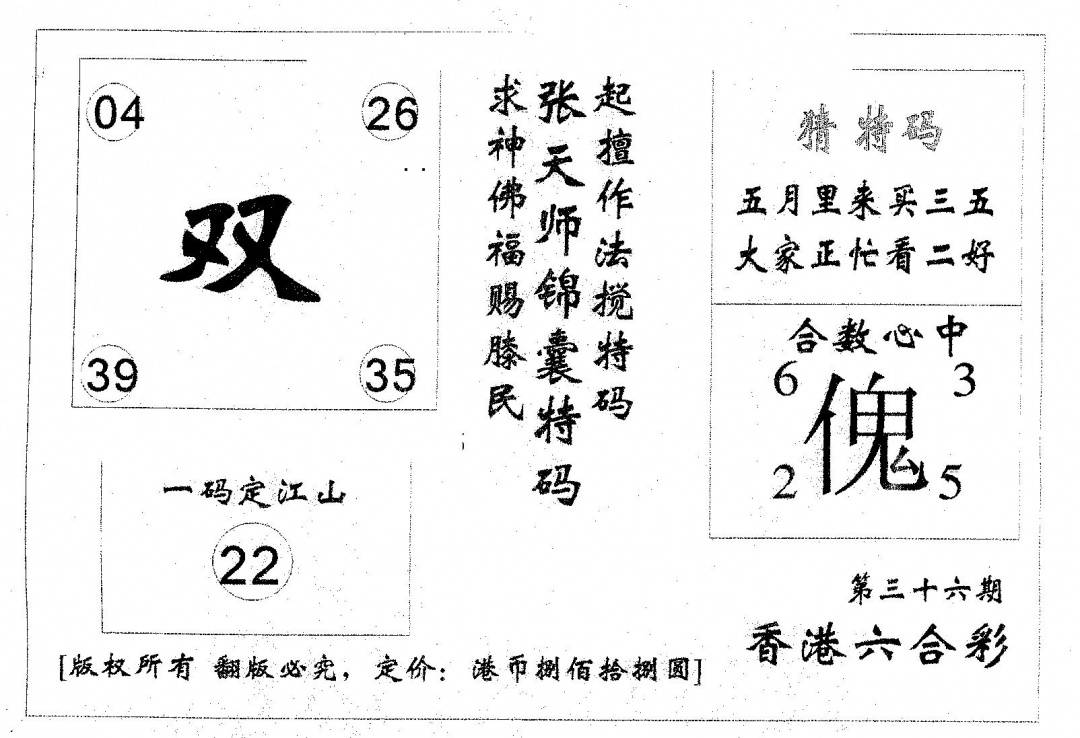 04 26
双
39 35
一码定江山
22
起擅作法搅特码
张天师锦囊特码
求神佛福赐滕民
猜特码
五月里来买三五
大家正忙看二好
合数必中
6 3
傀
2 5
第三十六期
香港六合彩
[版权所有 翻版必究, 定价: 港币捌佰拾捌圆]